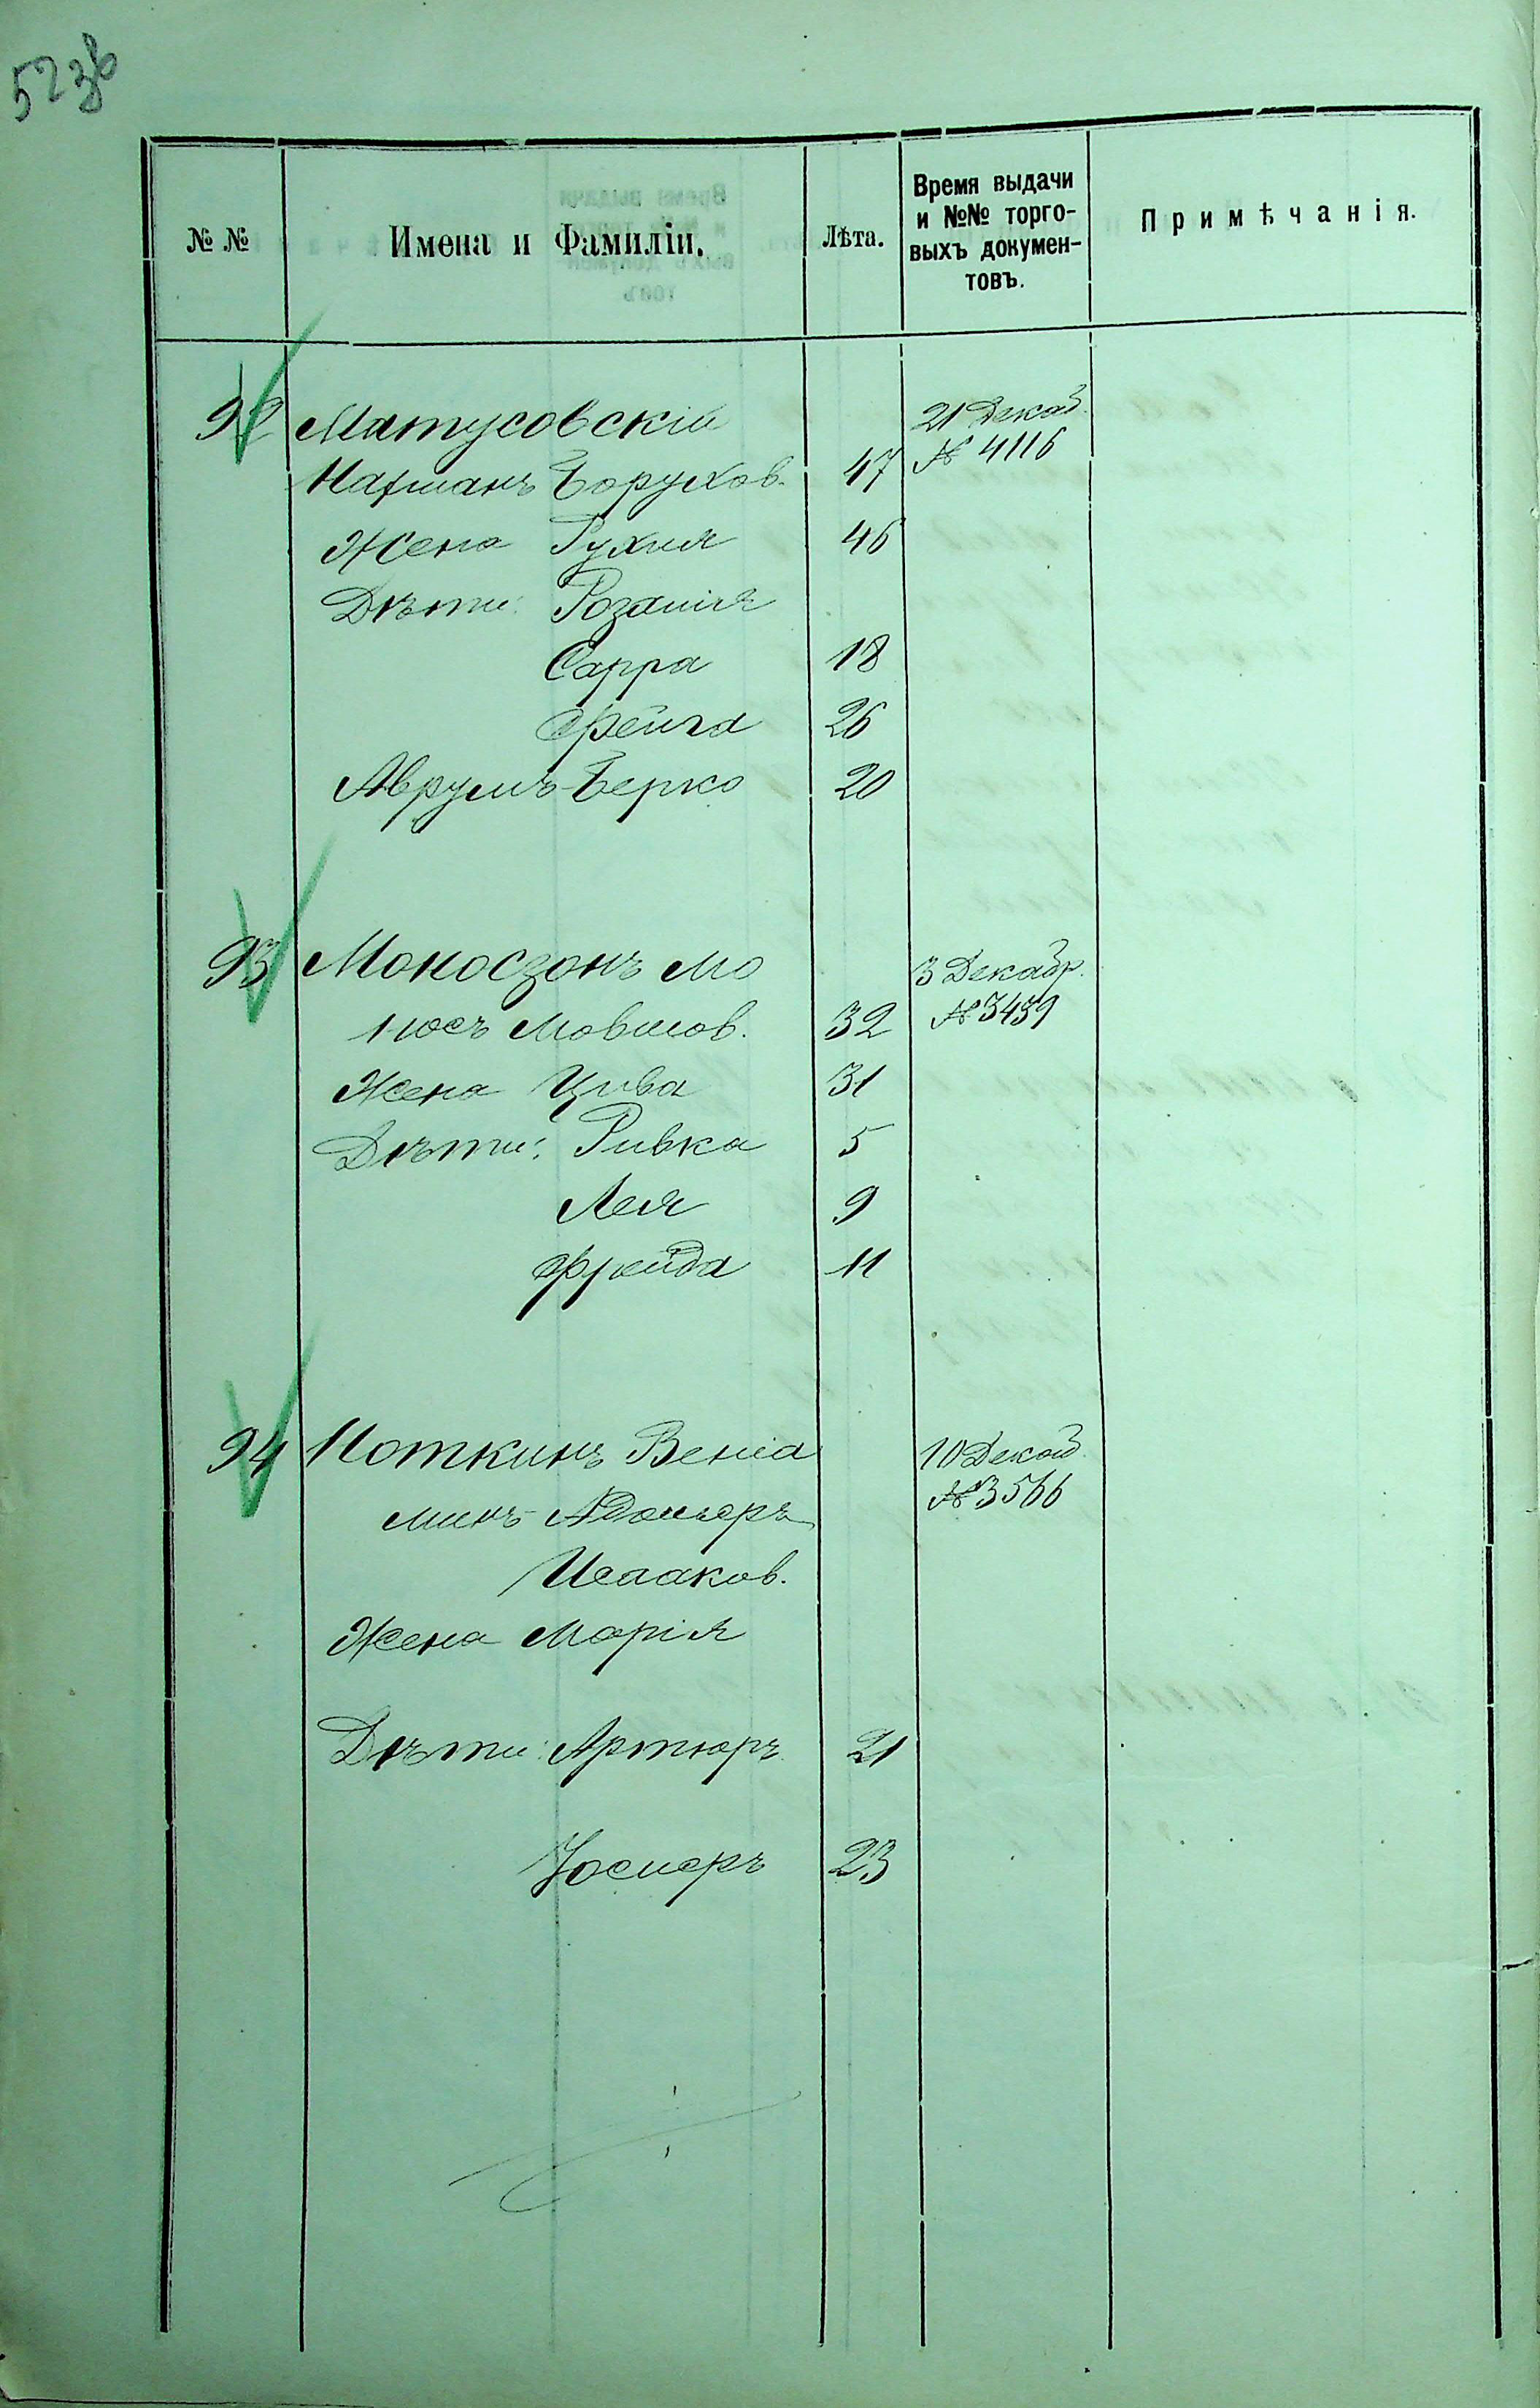 № №
Имена и Фамиліи.
Лѣта.
Время выдачи
и №№ торго-
выхъ докумен-
товъ.
Примѣчанія.
92 Матусовскій 21 Декаб.
Нахманъ Борухов. 47 № 4116
Жена Рухля 46
Дѣти: Розалія
Сарра 18
Фейга 26
Аврумъ-Берко 20
93 Моносзонъ Мо 3 Декабр.
Мовшов. 32 № 3439
Жена Цива 31
Дѣти: Ривка 5
Лея 9
Фрейда 11
94 Ноткинъ Веніа 10 Декаб.
минъ № 3566
Исааков.
Жена Марія
Дѣти: Артюръ 21
23